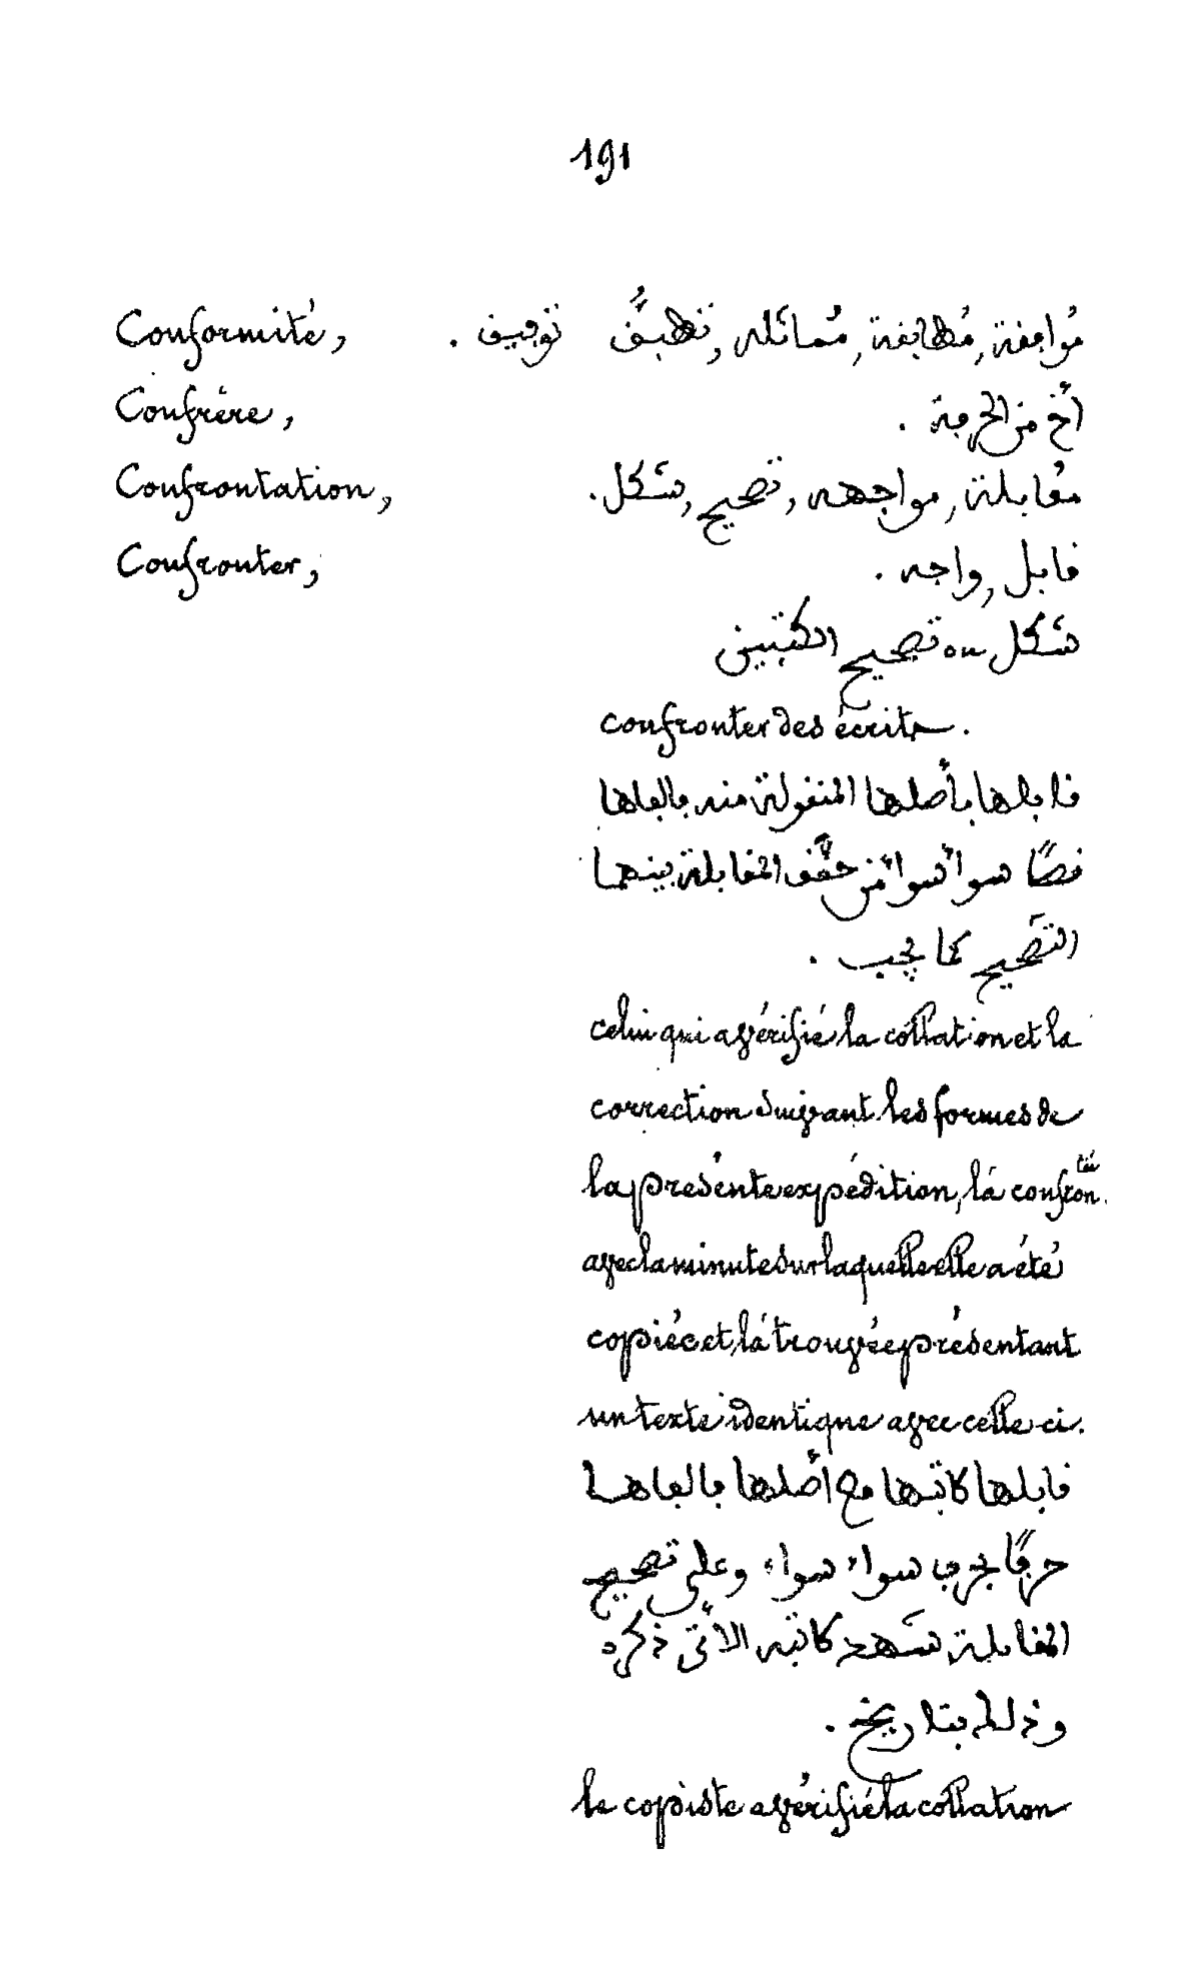 191
Conformité, مُوافقة, مُطابقة, مُماثله, تطبُّق توفيق .
Confrère, أخ من الحرفة .
Confrontation, مُقابلة, مواجهه, تصحيح, شَكل.
Confronter, قابل, واجه .
شَكل ou تصحيح الكتبين
confronter des écrits.
قابلها بأصلها المنقولة منه بالفاها
نصًا سوأ سوأ من حقّق المقابلة بينهما
التصَحيح كما يجب .
celui qui a vérifié la collation et la
correction suivant les formes de
la présente expédition, l'a confrontée
avec la minute sur laquelle elle a été
copiée et l'a trouvée présentant
un texte identique avec celle-ci.
قابلها كاتبها مع أصلها بالفاها
حرفًا بحرف سواء سواء وعلى تصحيح
المقابلة شَهد كاتبه الأتى ذكره
وذلك بتاريخ .
le copiste a vérifié la collation